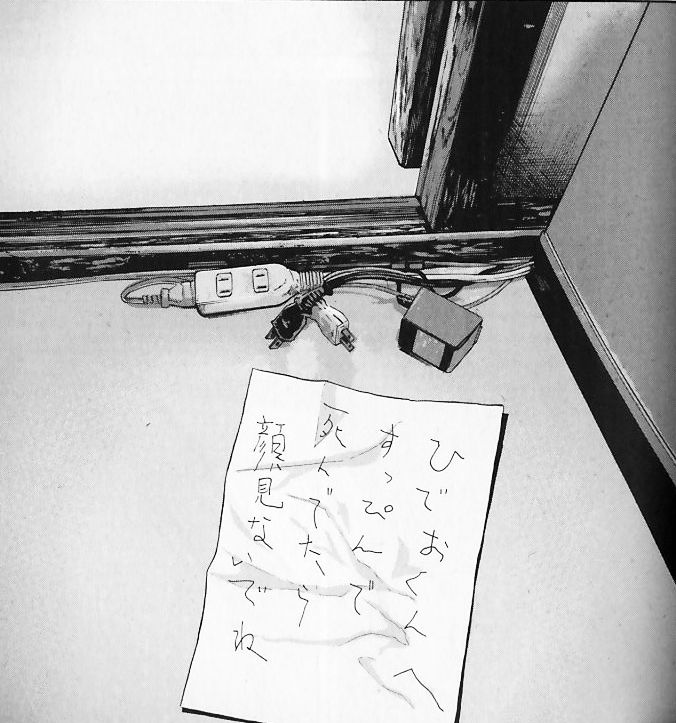 ひでおくんへ
すっぴんで
死んでたら
顔見ないでね